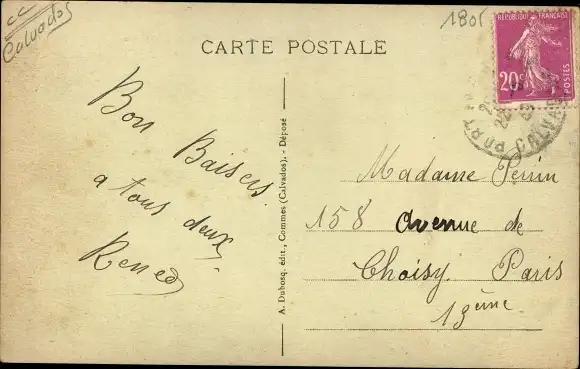 Calvados
1801
CARTE POSTALE
RÉPUBLIQUE FRANÇAISE
20c
POSTES
PORT
CALVADOS
Bon Baisers
a tous deux
Renée
A. Dubosq, édit., Commes (Calvados). - Déposé
Madame Perrin
158 Avenue de
Choisy. Paris
13ème